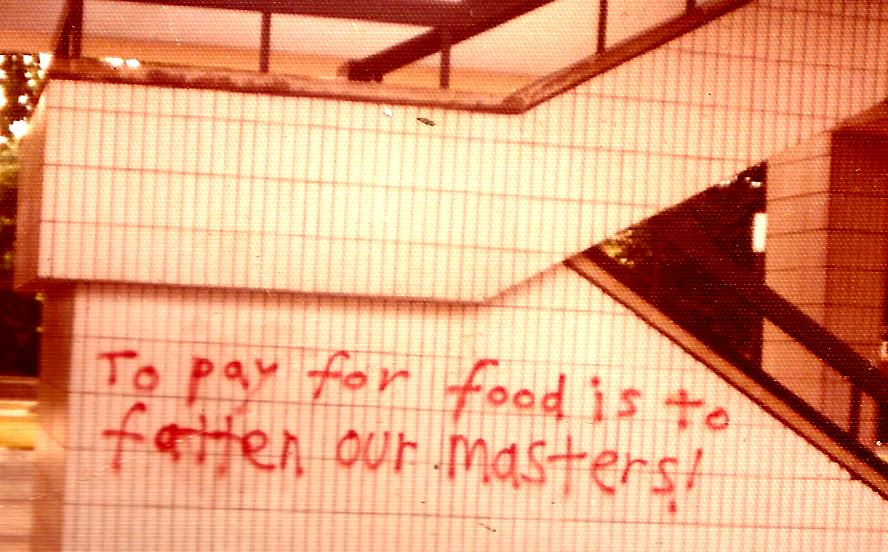 To pay for food is to
fatten our masters!